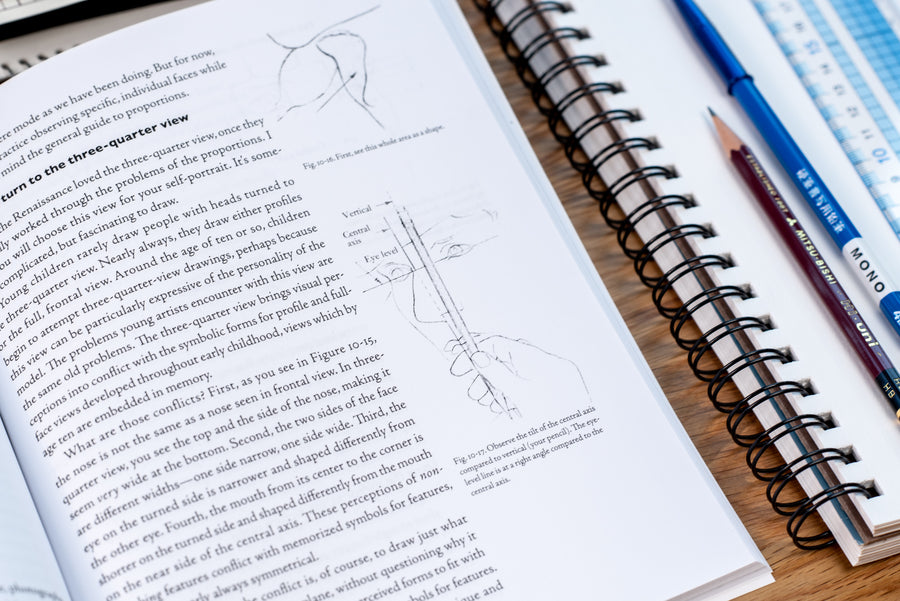 ere mode as we have been doing. But for now,
ractice observing specific, individual faces while
mind the general guide to proportions.
turn to the three-quarter view
he Renaissance loved the three-quarter view, once they
ly worked through the problems of the proportions. I
ou will choose this view for your self-portrait. It's some-
complicated, but fascinating to draw.
Young children rarely draw people with heads turned to
three-quarter view. Nearly always, they draw either profiles
or the full, frontal view. Around the age of ten or so, children
begin to attempt three-quarter-view drawings, perhaps because
this view can be particularly expressive of the personality of the
model. The problems young artists encounter with this view are
the same old problems. The three-quarter view brings visual per-
ceptions into conflict with the symbolic forms for profile and full-
face views developed throughout early childhood, views which by
age ten are embedded in memory.
What are those conflicts? First, as you see in Figure 10-15,
the nose is not the same as a nose seen in frontal view. In three-
quarter view, you see the top and the side of the nose, making it
seem very wide at the bottom. Second, the two sides of the face
are different widths—one side narrow, one side wide. Third, the
eye on the turned side is narrower and shaped differently from
the other eye. Fourth, the mouth from its center to the corner is
shorter on the turned side and shaped differently from the mouth
on the near side of the central axis. These perceptions of non-
features conflict with memorized symbols for features,
always symmetrical.
conflict is, of course, to draw just what
plane, without questioning why it
perceived forms to fit with
symbols for features.
and
Fig. 10-16. First, see this whole area as a shape.
Vertical
Central
axis
Eye level
Fig. 10-17. Observe the tilt of the central axis
compared to vertical (your pencil). The eye-
level line is at a right angle compared to the
central axis.
photograph
ESTABLISHED 1887 MITSU-BISHI
uni
HB
MONO
10